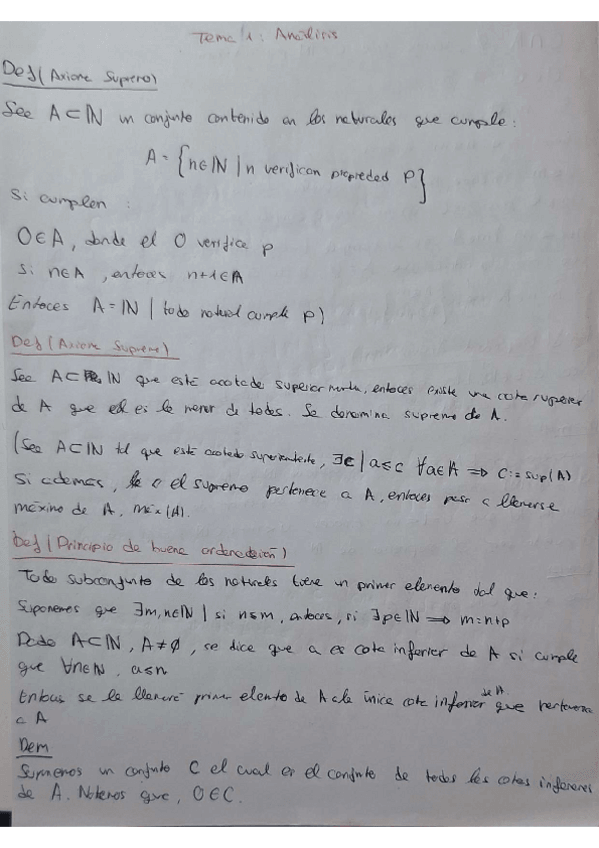 Tema 1: Análisis
Def (Axioma Supremo)
See A⊂ℕ un conjunto contenido en los naturales que cumple:
A = {n∈ℕ | n verifican propiedad P}
Si cumplen :
0∈A, donde el 0 verifica p
Si n∈A , entoces n+1∈A
Entoces A = ℕ | todo natural cumple p)
Def (Axioma Supremo)
See A⊂ ℕ que esté acotado superiormente, entoces existe una cota superior
de A que es la menor de todas. Se denomina supremo de A.
(See A⊂ℕ tal que esté acotado superiormente, ∃c | a≤c ∀a∈A ⇒ c:=sup(A)
Si además, el supremo pertenece a A, entoces pasa a llamarse
máximo de A, máx(A).
Def (Principio de buena ordenación)
Todo subconjunto de los naturales tiene un primer elemento tal que:
Suponemos que ∃m,n∈ℕ | si n≤m, entoces, si ∃p∈ℕ ⇒ m=n+p
Dado A⊂ℕ, A≠∅, se dice que a es cota inferior de A si cumple
que ∀n∈ℕ, a≤n
se le llamará primer elento de A a la única cota inferior de A que pertenezca
a A
Dem
un conjunto C el cual es el conjunto de todas las cotas inferiores
de A. Notemos que, 0∈C.